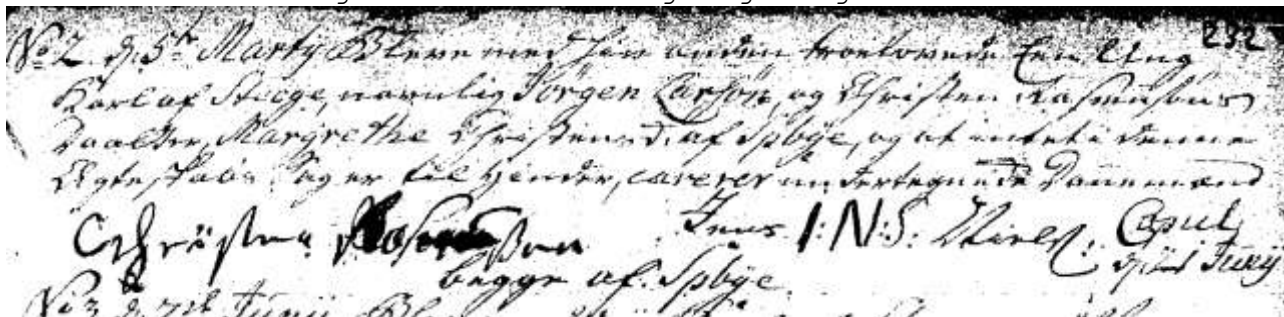 232
No 2 d. 5te Martij Bleve med hin anden troelovede Een Ung
Karl af Stege, navnlig Jörgen Larsön, og Christen Rasmusöns
Daatter, Margrethe Christensd. af Spbÿe, og at intet i denne
Egteskabs Sag er til hinder, caverer undertegnede Dannemænd
Christen Rasmusson Jens I:N:S: Copul.
begge af Spbÿe. Junÿ
No 3 d. Junÿ